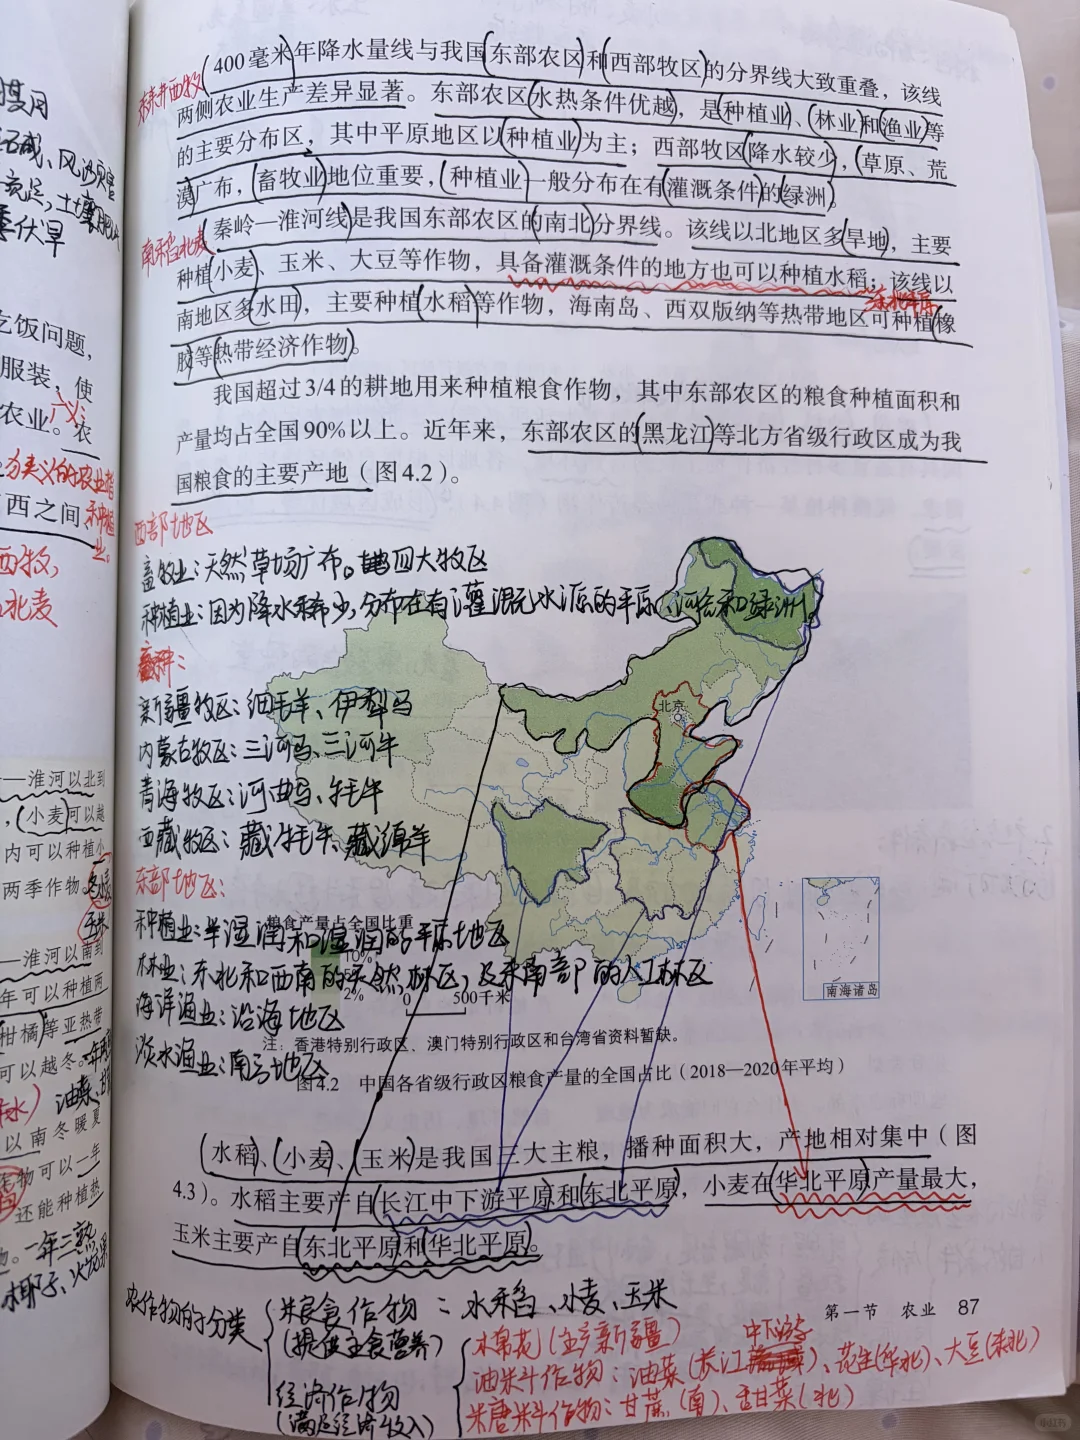 400毫米年降水量线与我国东部农区和西部牧区的分界线大致重叠，该线
两侧农业生产差异显著。东部农区水热条件优越，是种植业、林业和渔业等
的主要分布区，其中平原地区以种植业为主；西部牧区降水较少，草原、荒
漠广布，畜牧业地位重要，种植业一般分布在有灌溉条件的绿洲。
东耕西牧
秦岭—淮河线是我国东部农区的南北分界线。该线以北地区多旱地，主要
种植小麦、玉米、大豆等作物，具备灌溉条件的地方也可以种植水稻；该线以
南地区多水田，主要种植水稻等作物，海南岛、西双版纳等热带地区可种植橡
胶等热带经济作物。
南稻北麦
东北平原
我国超过3/4的耕地用来种植粮食作物，其中东部农区的粮食种植面积和
产量均占全国90%以上。近年来，东部农区的黑龙江等北方省级行政区成为我
国粮食的主要产地（图4.2）。
西部地区
畜牧业：天然草场广布。 四大牧区
种植业：因为降水稀少，分布在有灌溉水源的平原、河谷和绿洲。
畜种：
新疆牧区：细毛羊、伊犁马
内蒙古牧区：三河马、三河牛
青海牧区：河曲马、牦牛
西藏牧区：藏牦牛、藏绵羊
东部地区：
种植业：半湿润和湿润的平原地区
林业：东北和西南的天然林区，及东南部的人工林区
海洋渔业：沿海地区
淡水渔业：南方地区
北京
粮食产量占全国比重
10%
2%
0 500千米
南海诸岛
注：香港特别行政区、澳门特别行政区和台湾省资料暂缺。
图4.2 中国各省级行政区粮食产量的全国占比（2018—2020年平均）
水稻、小麦、玉米是我国三大主粮，播种面积大，产地相对集中（图
4.3）。水稻主要产自长江中下游平原和东北平原，小麦在华北平原产量最大，
玉米主要产自东北平原和华北平原。
第一节 农业 87
农作物的分类
粮食作物：水稻、小麦、玉米
（提供主食营养）
经济作物
（满足经济收入）
棉花（主产新疆）
油料作物：油菜（长江中下游）、花生（华北）、大豆（东北）
糖料作物：甘蔗（南）、甜菜（北）
吃饭问题，
服装，使
农业。农
西之间，
西牧，
北麦
—淮河以北到
，小麦可以越
内可以种植小
两季作物。
玉米
—淮河以南到
年可以种植两
柑橘等亚热带
可以越冬。
油菜、
以南冬暖夏
物可以一年
还能种植热
一年三熟
椰子、火龙果
季伏旱
小红书